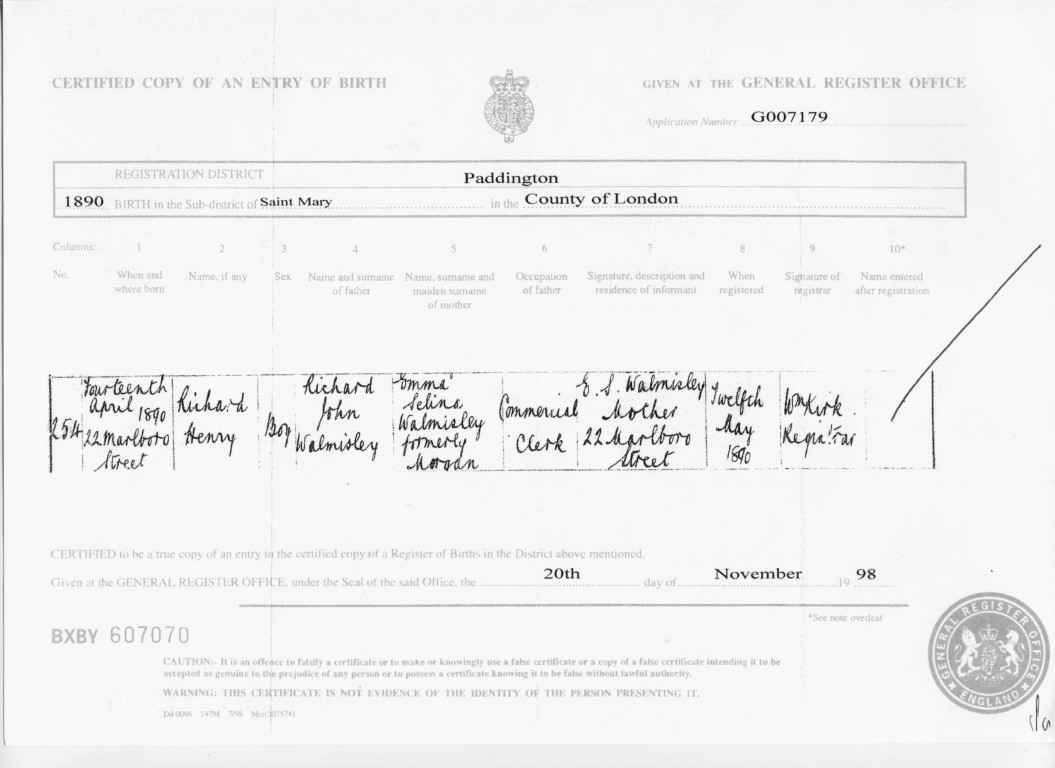 CERTIFIED COPY OF AN ENTRY OF BIRTH
GIVEN AT THE GENERAL REGISTER OFFICE
Application Number G007179
REGISTRATION DISTRICT Paddington
1890 BIRTH in the Sub-district of Saint Mary in the County of London
Columns: 1 2 3 4 5 6 7 8 9 10*
No. When and where born Name, if any Sex Name and surname of father Name, surname and maiden surname of mother Occupation of father Signature, description and residence of informant When registered Signature of registrar Name entered after registration
254
Fourteenth
April 1890
22 Marlboro
Street
Richard
Henry
Boy
Richard
John
Walmisley
Emma
Selina
Walmisley
formerly
Morgan
Commercial
Clerk
E. S. Walmisley
Mother
22 Marlboro
Street
Twelfth
May
1890
Wm Kirk
Registrar
CERTIFIED to be a true copy of an entry in the certified copy of a Register of Births in the District above mentioned.
Given at the GENERAL REGISTER OFFICE, under the Seal of the said Office, the 20th day of November 19 98
*See note overleaf
BXBY 607070
CAUTION:- It is an offence to falsify a certificate or to make or knowingly use a false certificate or a copy of a false certificate intending it to be
accepted as genuine to the prejudice of any person or to possess a certificate knowing it to be false without lawful authority.
WARNING: THIS CERTIFICATE IS NOT EVIDENCE OF THE IDENTITY OF THE PERSON PRESENTING IT.
Dd 0096 197M 7/98
GENERAL REGISTER OFFICE
ENGLAND